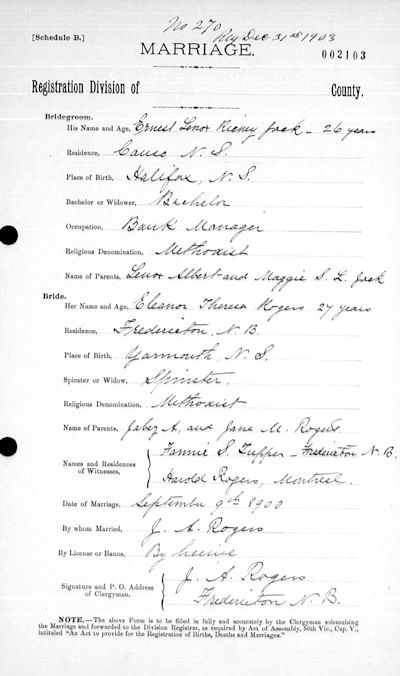 No 270
Reg Dec 31st 1903
[Schedule B.]
MARRIAGE.
002103
Registration Division of County.
Bridegroom.
His Name and Age, Ernest Lenor Jack - 26 years
Residence, Canso N. S.
Place of Birth, Halifax, N. S.
Bachelor or Widower, Bachelor
Occupation, Bank Manager
Religious Denomination, Methodist
Name of Parents, Lenor Albert and Maggie S. L. Jack
Bride.
Her Name and Age, Eleanor Theresa Rogers 27 years
Residence, Fredericton, N. B.
Place of Birth, Yarmouth, N. S.
Spinster or Widow, Spinster.
Religious Denomination, Methodist
Name of Parents, Jabez A. and Jane M. Rogers
Names and Residences of Witnesses,
Fannie S. Tupper - Fredericton N. B.
Harold Rogers, Montreal.
Date of Marriage, September 9th 1900
By whom Married, J. A. Rogers
By License or Banns, By license
Signature and P. O. Address of Clergyman.
J. A. Rogers
Fredericton N. B.
NOTE.—The above Form is to be filled in fully and accurately by the Clergyman solemnizing
the Marriage and forwarded to the Division Registrar, as required by Act of Assembly, 50th Vic., Cap. V.,
intituled "An Act to provide for the Registration of Births, Deaths and Marriages."